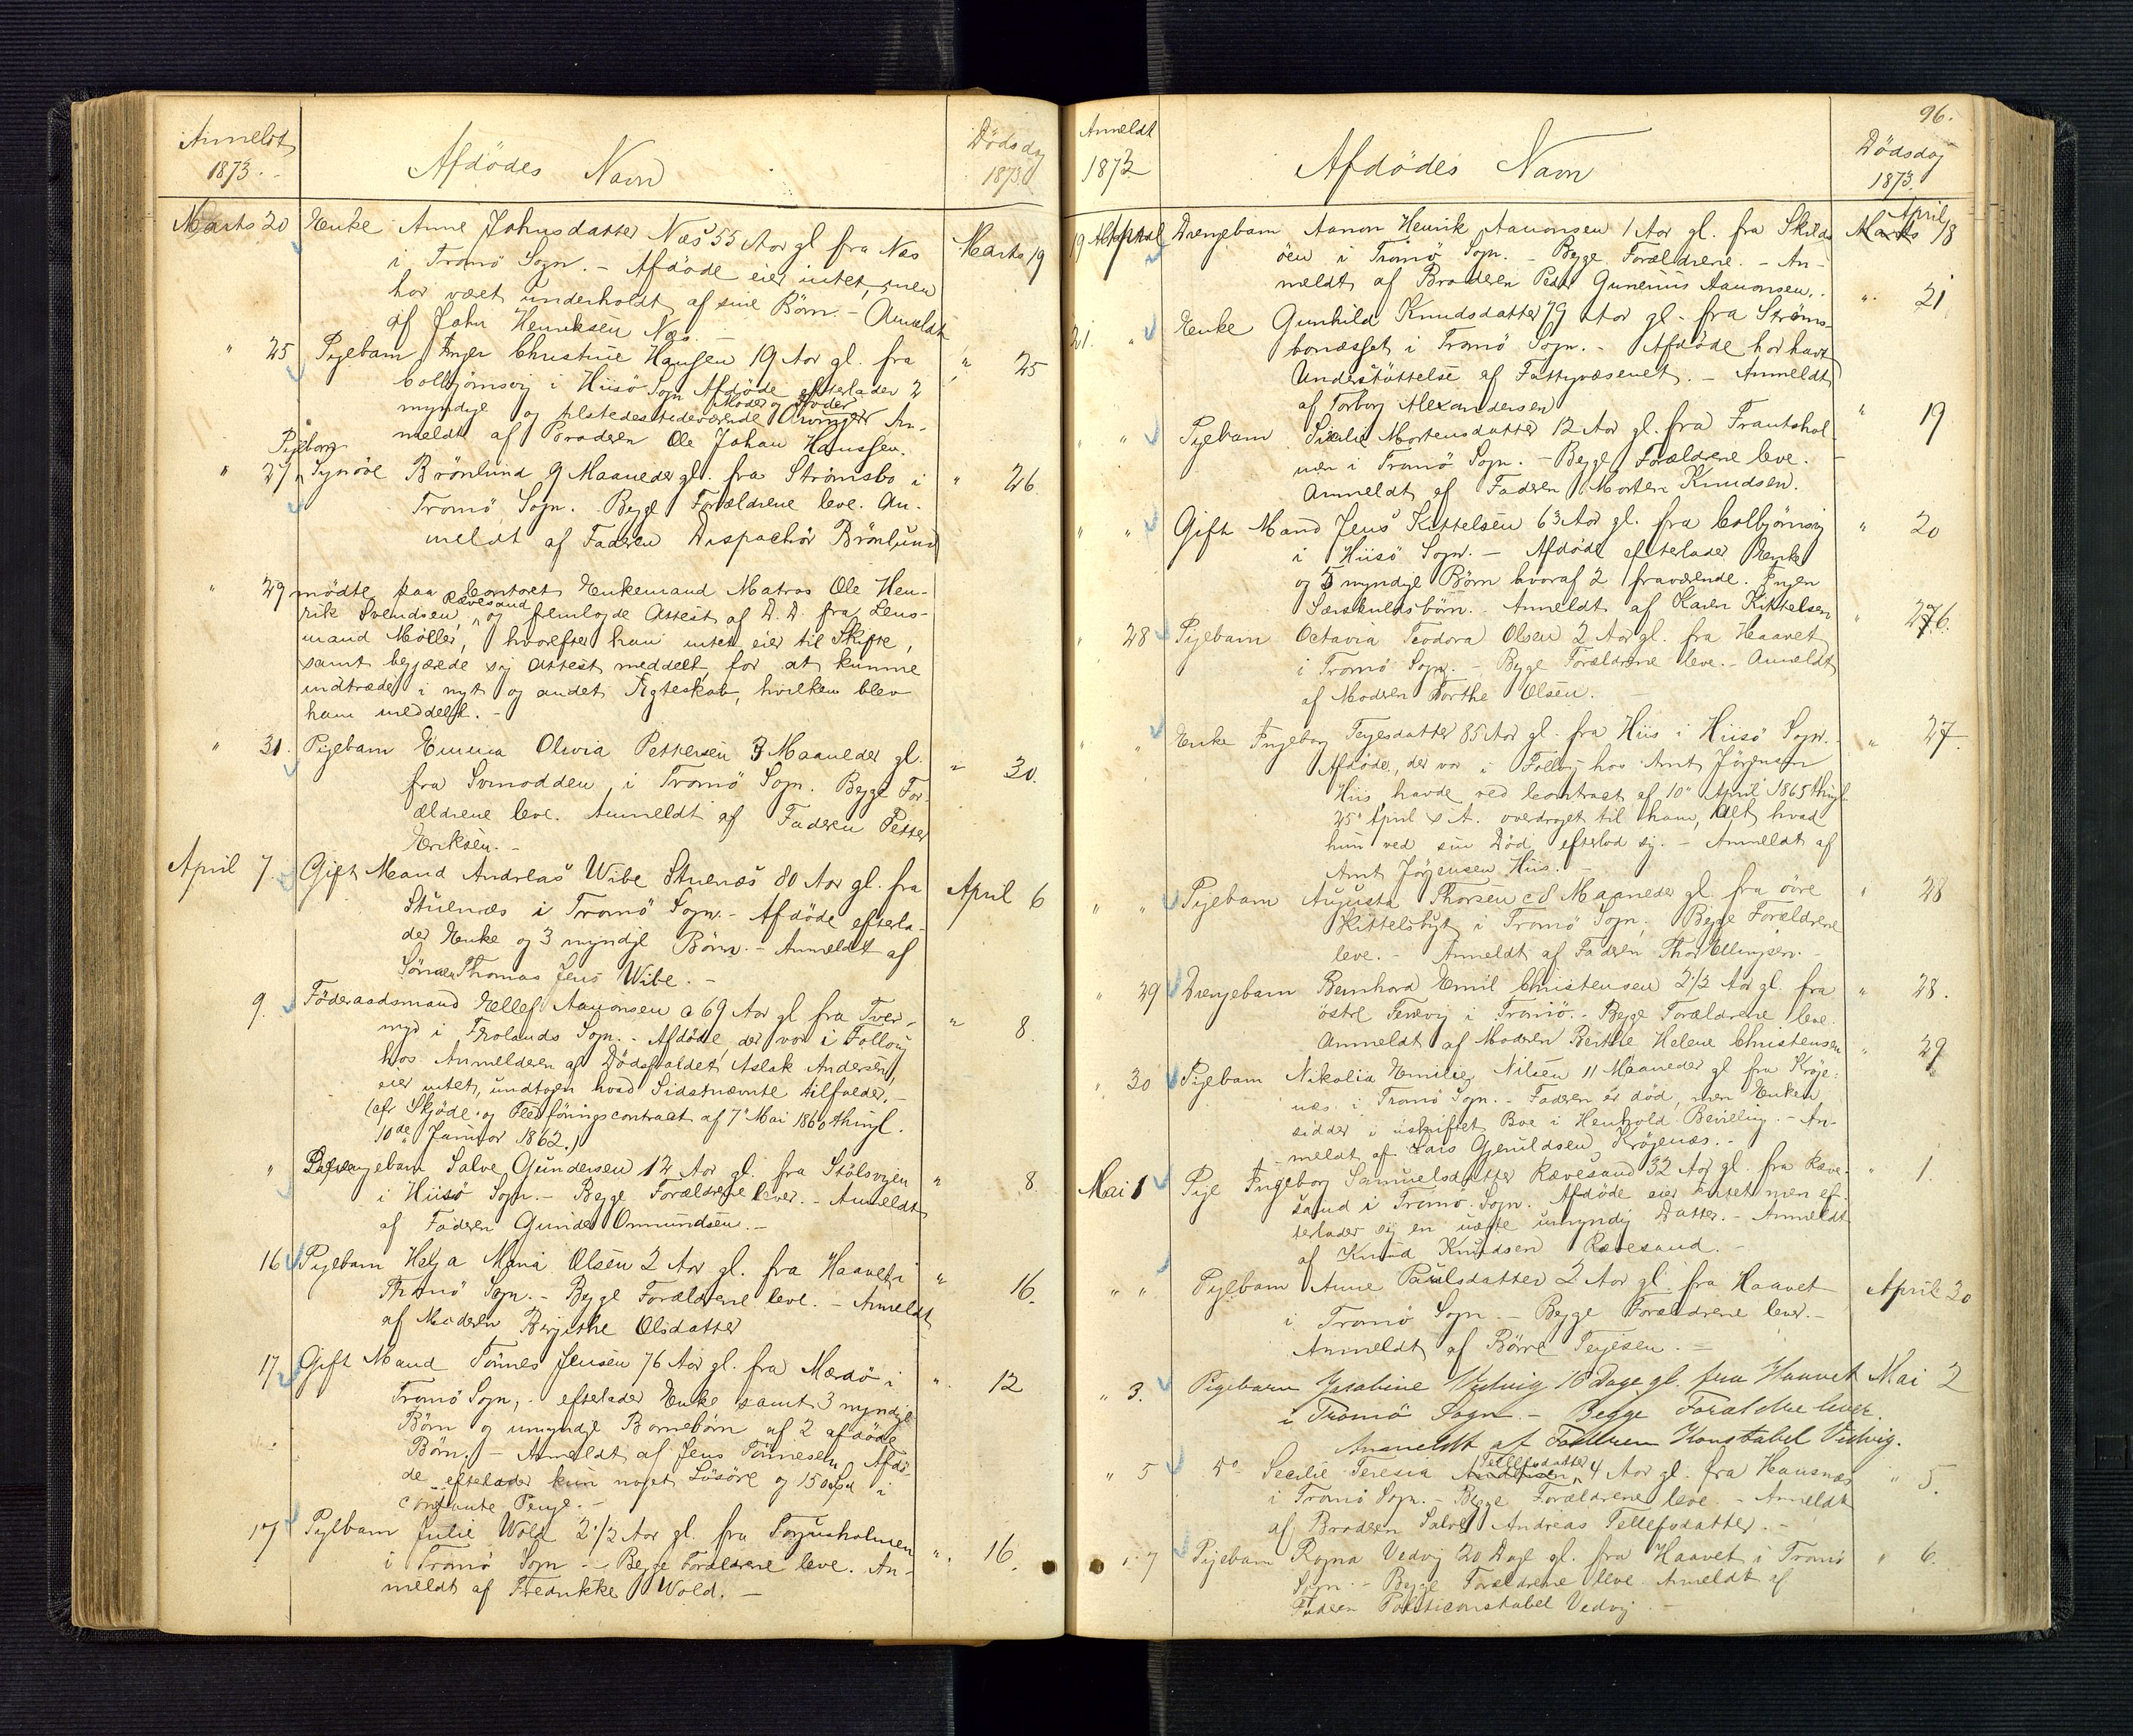 Anmeldt
1873.
Afdödes Navn
Dödsdag
1873.
Marts 20 Enke Anne Johnsdatter Næs 55 Aar gl fra Næs Marts 19
i Tromö Sogn. - Afdöde eier intet, men
har været underholdt af sine Börn. - Anmeldt
af John Henriksen Næs. -
" 25 Pigebarn Inger Christine Hansen 19 Aar gl. fra " 25
Colbjörnsvig i Hisö Sogn Afdöde efterlader 2
Moder og Broder
myndige og tilstedesteværende Arvinger An-
meldt af Broderen Ole Johan Hanssen.
Pigebarn
" 27 Synöve Brönlund 9 Maaneder gl. fra Strömsbo i " 26.
Tromö Sogn. Begge Forældrene leve. An-
meldt af Faderen Dispachör Brönlund
" 29 mödte paa Contoret Enkemand Matros Ole Hen-
rik Svendsen Rævesand, og fremlagde Attest af D. D. fra Lens-
mand Möller, hvorefter han intet eier til Skifte,
samt begjærede sig Attest meddelt for at kunne
indtræde i nyt og andet Ægteskab, hvilken blev
ham meddelt. -
" 31. Pigebarn Emma Olivia Pettersen 3 Maaneder gl. " 30.
fra Svinodden i Tromö Sogn. Begge For-
ældrene leve. Anmeldt af Faderen Petter
Eriksen. -
April 7. Gift Mand Andreas Wibe Stuenæs 80 Aar gl. fra April 6
Stuenæs i Tromö Sogn. - Afdöde efterla-
der Enke og 3 myndige Börn. - Anmeldt af
Sönnen Thomas Jens Wibe. -
9. Föderaadsmand Ellef Aanonsen c 69 Aar gl fra Tver- " 8.
myr i Frolands Sogn. - Afdöde, der var i Follog
hos Anmelderen af Dödsfaldet Aslak Andersen,
eier intet, undtagen hvad Sidstnævnte tilfalder. -
(cfr Skjöde og Fledföringscontract af 7de Mai 1860 thingl.
10de Januar 1862.)
" Drengebarn Salve Gundersen 12 Aar gl. fra Stölsvigen " 8.
i Hisö Sogn. - Begge Forældrene lever. - Anmeldt
af Faderen Gunder Omundsen. -
16 Pigebarn Helga Maria Olsen 2 Aar gl. fra Haavet i " 16.
Tromö Sogn. - Begge Forældrene leve. - Anmeldt
af Moderen Birgithe Olsdatter
17. Gift Mand Tönnes Jensen 76 Aar gl. fra Mærdö i " 12
Tromö Sogn, - efterlader Enke samt 3 myndige
Börn og umyndige Bornebörn af 2 afdöde
Börn. - Anmeldt af Jens Tönnesen Afdö-
de efterlader kun noget Lösöre og 150 Spd i
contante Penge. -
17 Pigebarn Julie Wold 2 1/2 Aar gl. fra Torjusholmen " 16.
i Tromö Sogn - Begge Forældrene leve. An-
meldt af Fredrikke Wold. -
96.
Anmeldt
1873
Afdödes Navn
Dödsdag
1873.
19 April Drengebarn Aanon Henrik Aanonsen 1 Aar gl. fra Skilds- April 18
öen i Tromö Sogn. - Begge Forældrene. - An-
meldt af Broderen Peder Gunerius Aanonsen.
21. " Enke Gunhild Knudsdatter 79 Aar gl. fra Ströms- " 21
bonæsset i Tromö Sogn. - Afdöde har havt
Understöttelse af Fattigvæsenet. - Anmeldt
af Torborg Alexandersen
" " Pigebarn Sicelie Mortensdatter 12 Aar gl. fra Frantshol- " 19
men i Tromö Sogn. - Begge Forældrene leve. -
Anmeldt af Faderen Morten Knudsen.
" " Gift Mand Jens Kittelsen 63 Aar gl. fra Colbjörnsvig " 20
i Hisö Sogn. - Afdöde efterlader Enke
og 5 myndige Börn hvoraf 2 fraværende. Ingen
Særkuldsbörn. - Anmeldt af Karen Kittelsen
" 28 Pigebarn Octavia Teodora Olsen 2 Aar gl. fra Haavet " 26.
i Tromö Sogn. - Begge Forældrene leve. - Anmeldt
af Moderen Dorthe Olsen. -
" " Enke Ingeborg Terjesdatter 85 Aar gl. fra Hiis i Hiisö Sogn. - " 27.
Afdöde, der var i Follog hos Amt Jörgensen
Hiis havde ved Contract af 10de April 1865 thingl.
25de April s. A. overdraget til ham, Alt hvad
hun ved sin Död efterlod sig. - Anmeldt af
Amt Jörgensen Hiis. -
" " Pigebarn Augusta Thorsen c 8 Maaneder gl. fra övre " 28
Kittelsbugt i Tromö Sogn. Begge Forældrene
leve. - Anmeldt af Faderen Thor Ellingsen. -
" 29 Drengebarn Bernhard Emil Christensen 2 1/2 Aar gl. fra " 28.
östre Tervig i Tromö. - Begge Forældrene leve.
Anmeldt af Moderen Berthe Helene Christensen
" 30 Pigebarn Nikolia Emilie Nilsen 11 Maaneder gl fra Kröge- " 29
næs i Tromö Sogn. - Faderen er död, men Enken
sidder i uskiftet Bo i Henhold Bevilling. - An-
meldt af Lars Gjeruldsen Krögenæs. -
Mai 1 Pige Ingeborg Samuelsdatter Rævesand 32 Aar gl. fra Ræve- " 1.
sand i Tromö Sogn. Afdöde eier Intet men ef-
terlader sig en uægte umyndig Datter. - Anmeldt
af Knud Knudsen Rævesand. -
" " Pigebarn Anne Paulsdatter 2 Aar gl. fra Haavet April 30
i Tromö Sogn. - Begge Forældrene lever. -
Anmeldt af Börre Terjesen. -
" 3. Pigebarn Jasabine Vedvig 16 Dage gl. fra Haavet Mai 2
i Tromö Sogn. - Begge Forældre lever.
Anmeldt af Faderen Konstabel Vedvig.
" 5 do Secilie Teresia Tellefsdatter 4 Aar gl. fra Hausnæs " 5.
i Tromö Sogn. - Begge Forældrene leve. - Anmeldt
af Broderen Salve Andreas Tellefsdatter. -
" 7 Pigebarn Ragna Vedvig 20 Dage gl. fra Haavet i Tromö " 6.
Sogn. - Begge Forældrene leve Anmeldt af
Faderen Politiconstabel Vedvig -